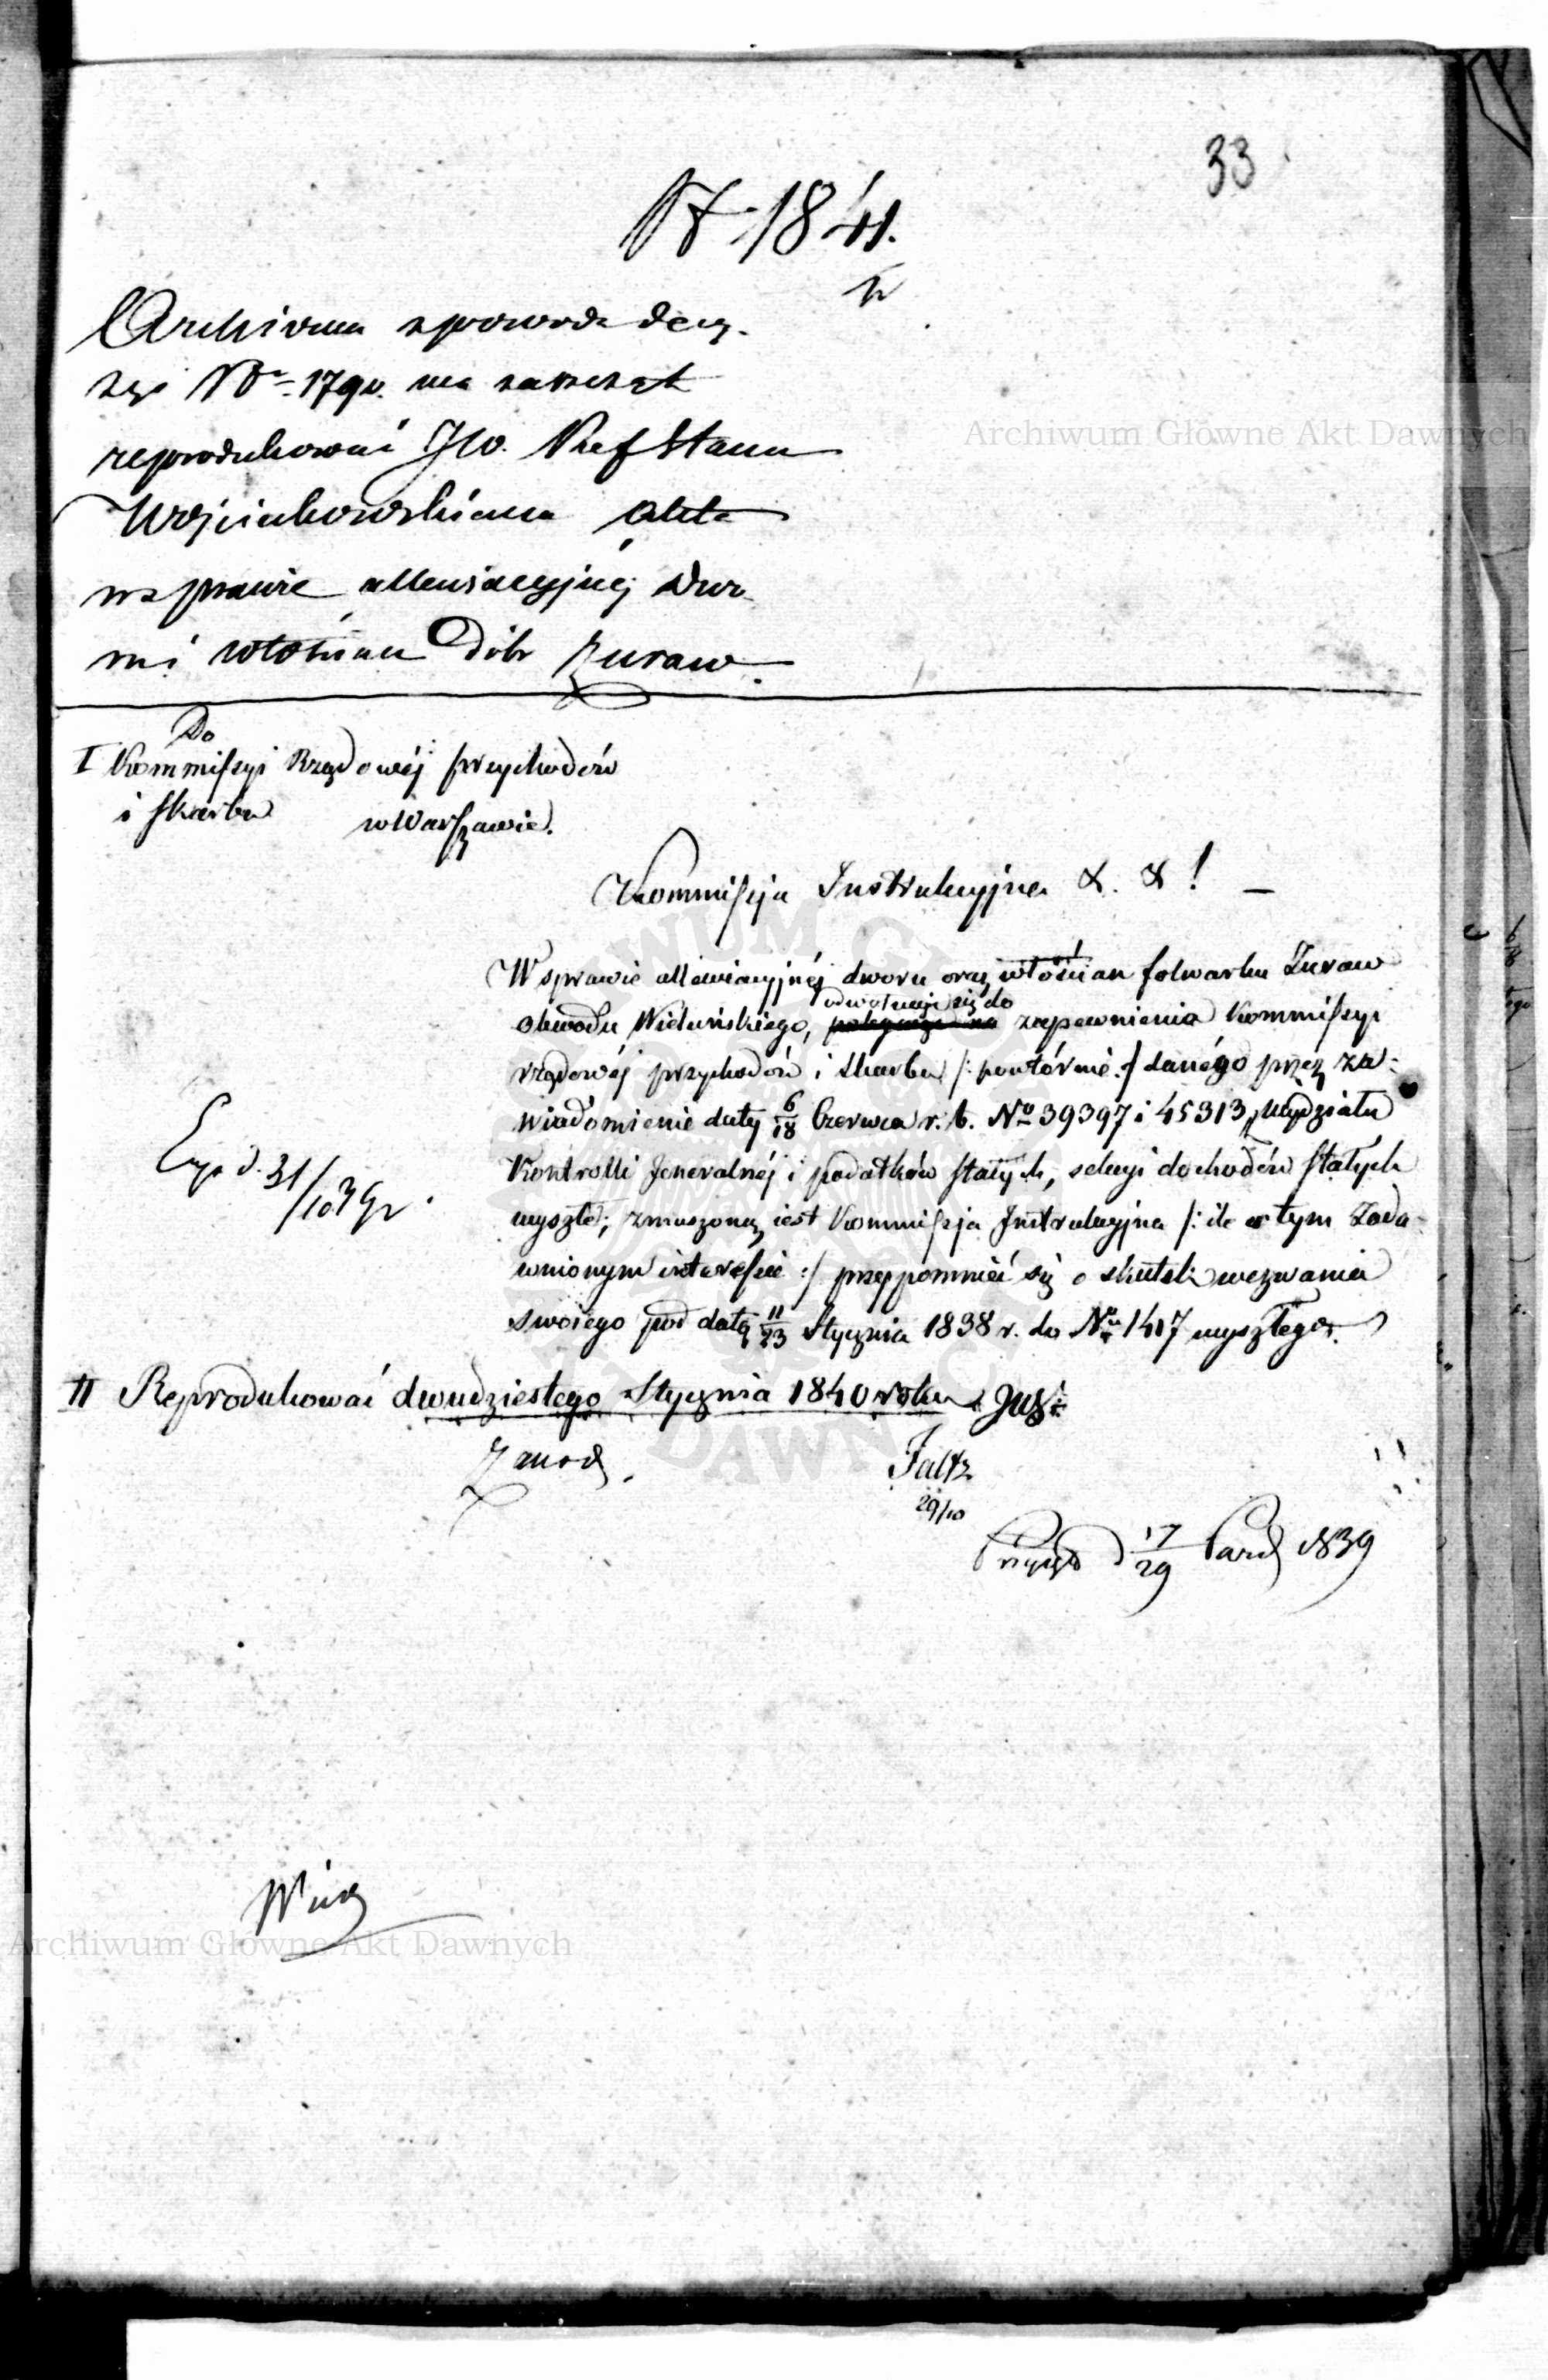 33
N 1841.
Archivum z powodu decy-
zyi Nr 1790. ma zaraz akt
reprodukować JW. Ref Stanu
Wojciechowskiemu akta
w sprawie allewiacyjnéj dwo-
ru i włościan Dóbr Zuraw.
Do
I Kommissyi Rządowéj przychodów
i Skarbu w Warszawie.
Kommissyja Instrukcyjna &. &! —
W sprawie allewiacyjnéj dworu oraz włościan folwarku Zuraw
odwołując się do
obwodu Wieluńskiego, zapewnienia Kommissyi
rządowéj przychodów i skarbu /: powtórnie :/ danégo przez za-
wiadomienie daty 6/18 Czerwca r. b. No 39397 i 45313, Wydziału
Kontrolli Jeneralnéj i podatków stałych, sekcyi dochodów stałych
wyszłe; zmuszoną iest Kommissyja Instrukcyjna /: ile w tym zada-
wnionym interessie :/ przypomnieć się o skutek wezwania
swoiego pod datą 11/23 Stycznia 1838 r. do Nru 1417 wyszłego.
Exp d. 31/10 39
II Reprodukować dwudziestego Stycznia 1840 roku
Faltz
29/10
d 17/29 Paźd 1839
Archiwum Główne Akt Dawnych
Archiwum Główne Akt Dawnych